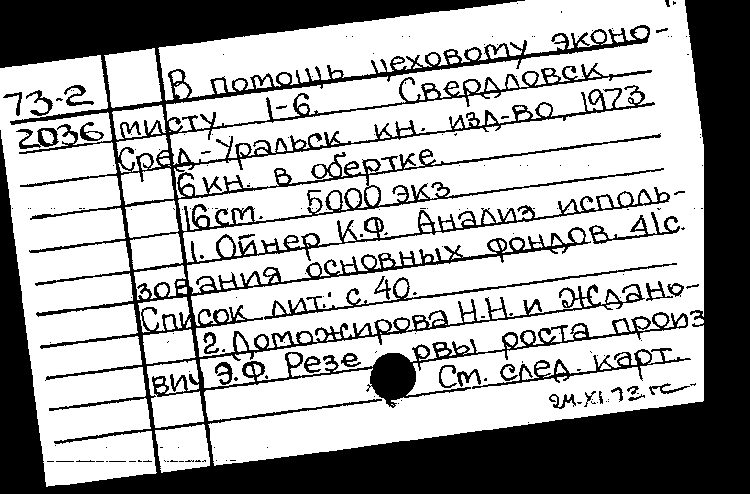 В помощь цеховому эконо-
73-2
2036 мисту. 1-6. Свердловск,
Сред.-Уральск. кн. изд-во, 1973
6 кн. в обертке.
16 см. 5000 экз
1. Ойнер К.Ф. Анализ исполь-
зования основных фондов. 41 с.
Список лит.: с. 40.
2. Доможирова Н.Н. и Ждано-
вич Э.Ф. Резе рвы роста произ
См. след. карт.